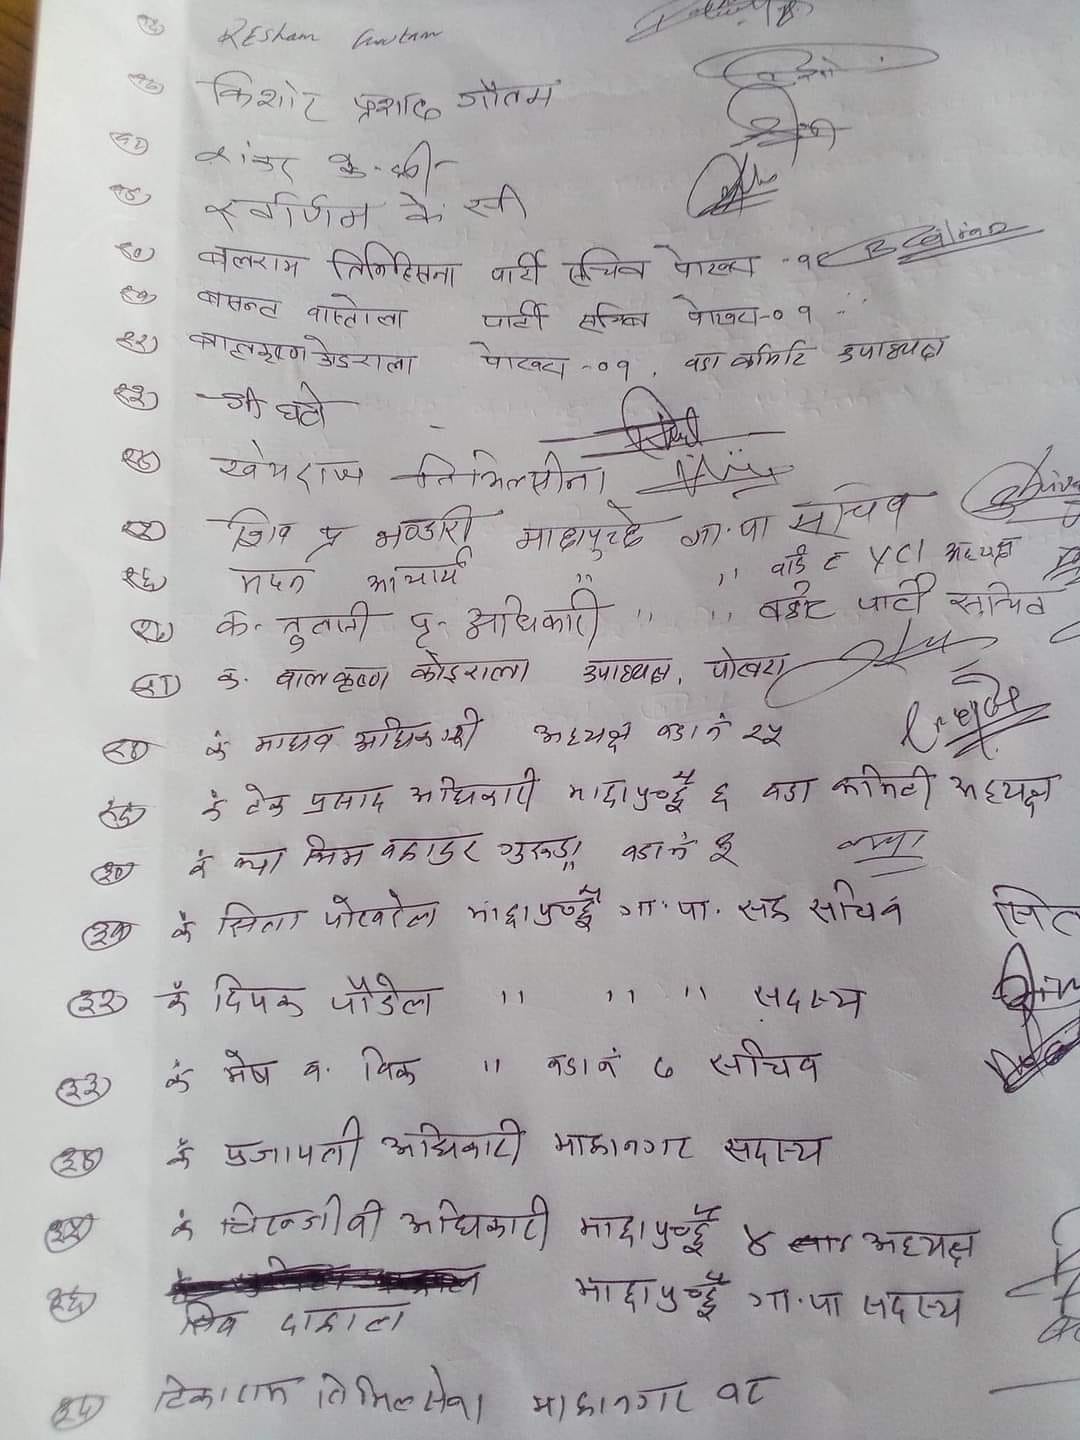 १६ Resham Gautam
१७ किशोर प्रशाद गौतम
१८ शंकर के.सी
१९ स्वर्णिम के सी
२० बलराम तिमिल्सिना पार्टी सचिव पोखरा -१८
२१ बसन्त वास्तोला पार्टी सचिव पोखरा-०१
२२ बालकृष्ण कोइराला पोखरा -०१, वडा कमिटि उपाध्यक्ष
२३
२४ खेमराज तिमिल्सीना
२५ शिव प्र भण्डारी माछापुच्छ्रे गा.पा सचिव
२६ मदन आचार्य " " वार्ड ८ YCL अध्यक्ष
२७ क. तुलसी प्र. अधिकारी " " पार्टी सचिव
२८ क. बालकृष्ण कोइराला उपाध्यक्ष, पोखरा
क माधव अधिकारी अध्यक्ष वडा नं २५
२९ क टेक प्रसाद अधिकारी माछापुच्छ्रे ६ वडा कमिटी अध्यक्ष
३० क क्या भिम बहादुर गुरुङ वडा नं ३
३१ क सिता पोखरेल माछापुच्छ्रे गा.पा. सह सचिव
३२ क दिपक पौडेल " " " सदस्य
३३ क मेष ब. विक " वडा नं ७ सचिव
३४ क प्रजापती अधिकारी माहानगर सदस्य
३५ क चिरन्जीवी अधिकारी माछापुच्छ्रे ४ अध्यक्ष
३६ माछापुच्छ्रे गा.पा सदस्य
शिव दाहाल
३७ टिकाराम तिमिल्सेना माहानगर १८